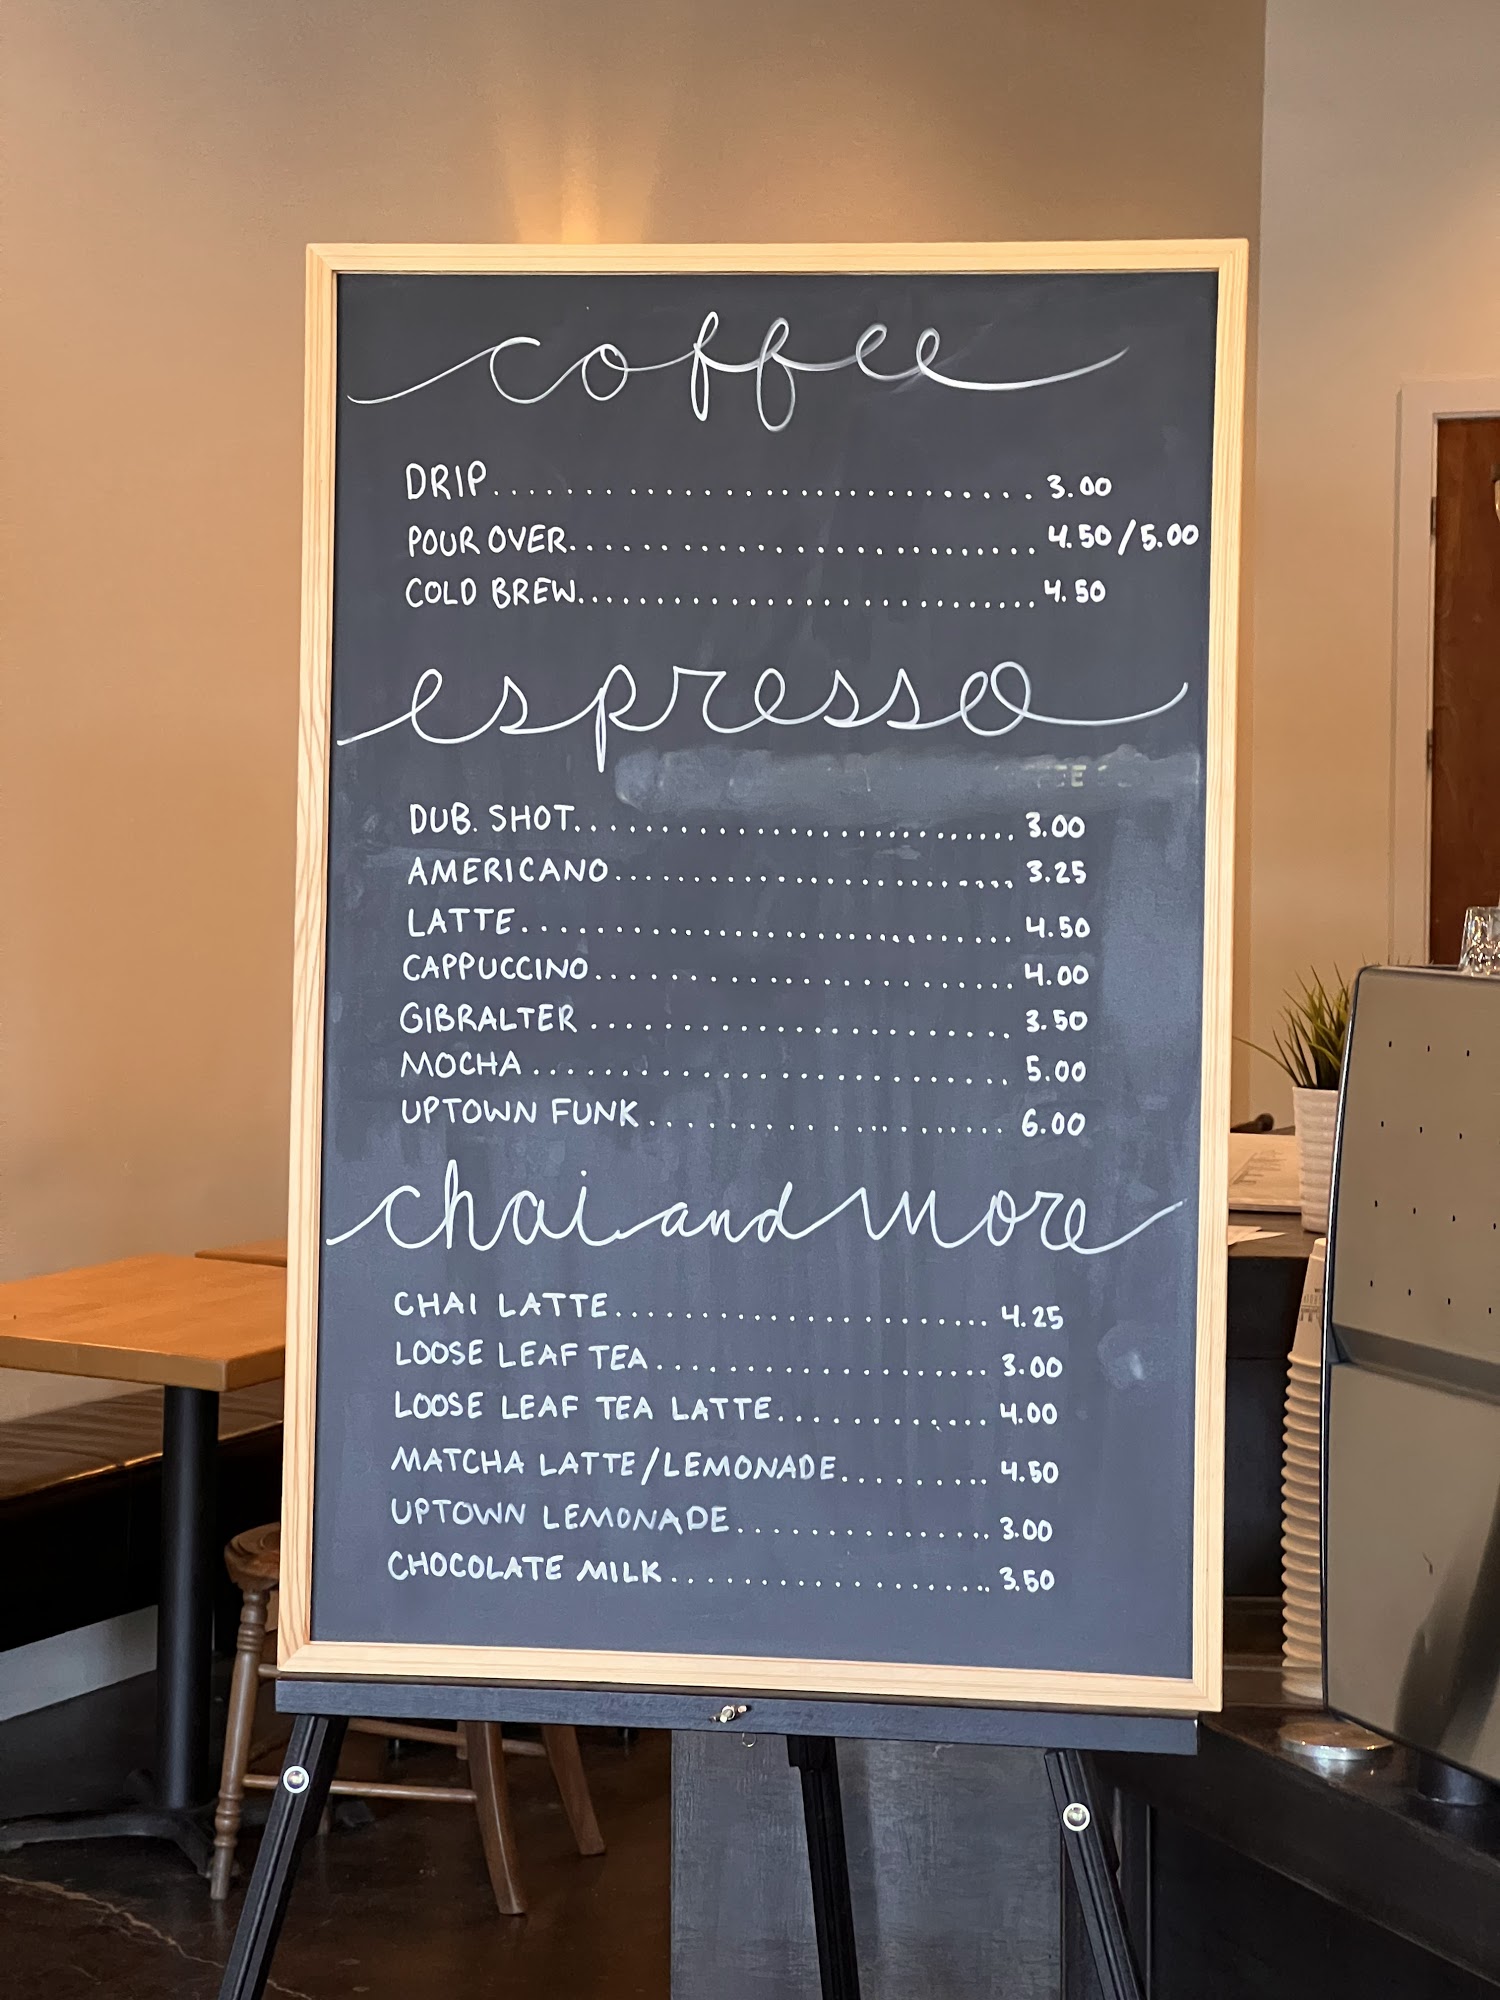 coffee
DRIP............................. 3.00
POUR OVER........................... 4.50/5.00
COLD BREW.......................... 4.50
espresso
DUB. SHOT........................ 3.00
AMERICANO...................... 3.25
LATTE........................... 4.50
CAPPUCCINO...................... 4.00
GIBRALTER ...................... 3.50
MOCHA ......................... 5.00
UPTOWN FUNK.................. 6.00
chai and more
CHAI LATTE..................... 4.25
LOOSE LEAF TEA.................. 3.00
LOOSE LEAF TEA LATTE............ 4.00
MATCHA LATTE/LEMONADE......... 4.50
UPTOWN LEMONADE............... 3.00
CHOCOLATE MILK.................. 3.50